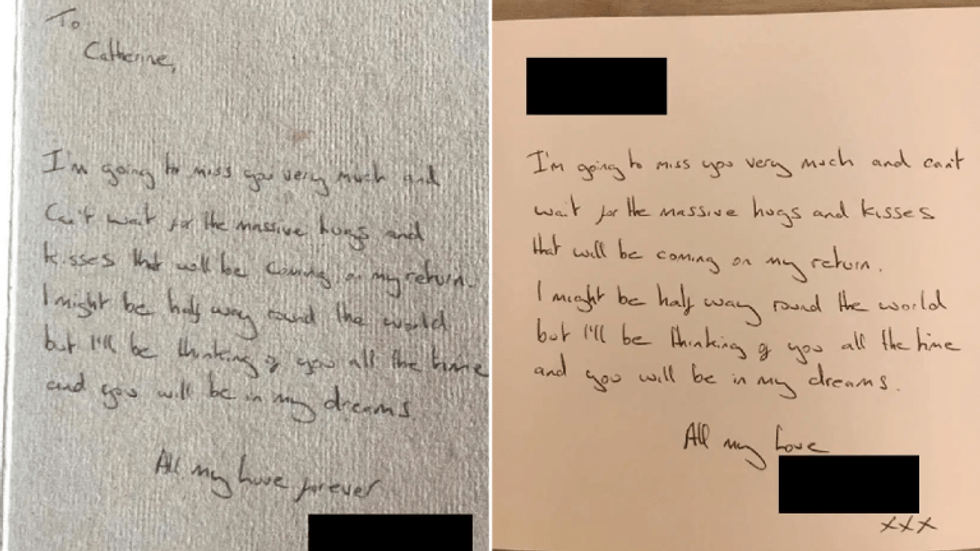 To
Catherine,
I'm going to miss you very much and
Can't wait for the massive hugs and
kisses that will be coming on my return.
I might be half way round the world
but I'll be thinking of you all the time
and you will be in my dreams.
All my love forever
I'm going to miss you very much and can't
wait for the massive hugs and kisses
that will be coming on my return.
I might be half way round the world
but I'll be thinking of you all the time
and you will be in my dreams.
All my love
xxx